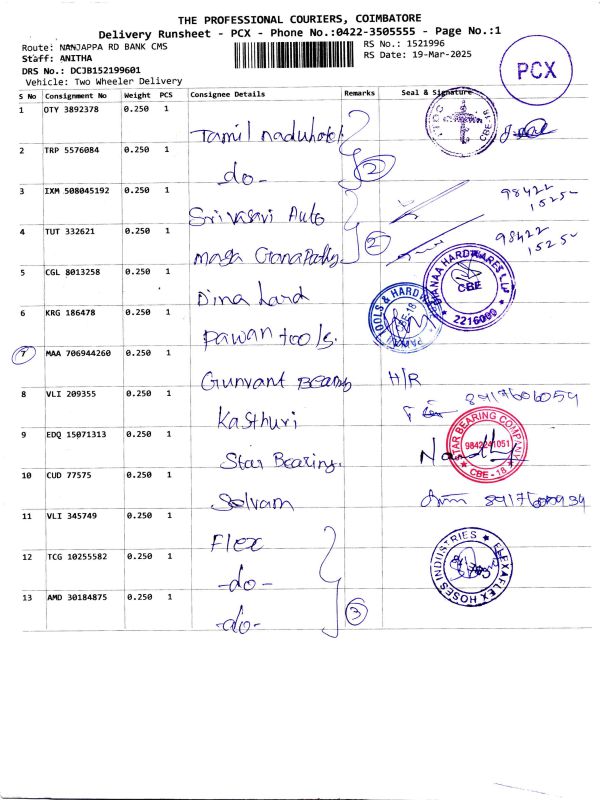 THE PROFESSIONAL COURIERS, COIMBATORE
Delivery Runsheet - PCX - Phone No.:0422-3505555 - Page No.:1
Route: NANJAPPA RD BANK CMS
RS No.: 1521996
Staff: ANITHA
RS Date: 19-Mar-2025
DRS No.: DCJB152199601
Vehicle: Two Wheeler Delivery
PCX
S No Consignment No Weight PCS Consignee Details Remarks Seal & Signature
1 OTY 3892378 0.250 1
CBE-18
Tamil nadu
2 TRP 5576084 0.250 1
-do- 2
3 IXM 508045192 0.250 1
98422
Srivasavi Auto
4 TUT 332621 0.250 1
98422
2
5 CGL 8013258 0.250 1
HARDWARES LLP
CBE
2216000
Dina
6 KRG 186478 0.250 1
TOOLS & HARD
CBE-18
Pawan tools.
7 MAA 706944260 0.250 1
Gunvant Bearing H/R
8 VLI 209355 0.250 1
8917606059
Kasthuri
9 EDQ 15071313 0.250 1
STAR BEARING COMPANY
9842241051
CBE - 18
Star Bearing.
10 CUD 77575 0.250 1
Selvam
11 VLI 345749 0.250 1
Flex
12 TCG 10255582 0.250 1
ELEXAFLEX HOSES INDUSTRIES
-do-
13 AMD 30184875 0.250 1
-do- 3